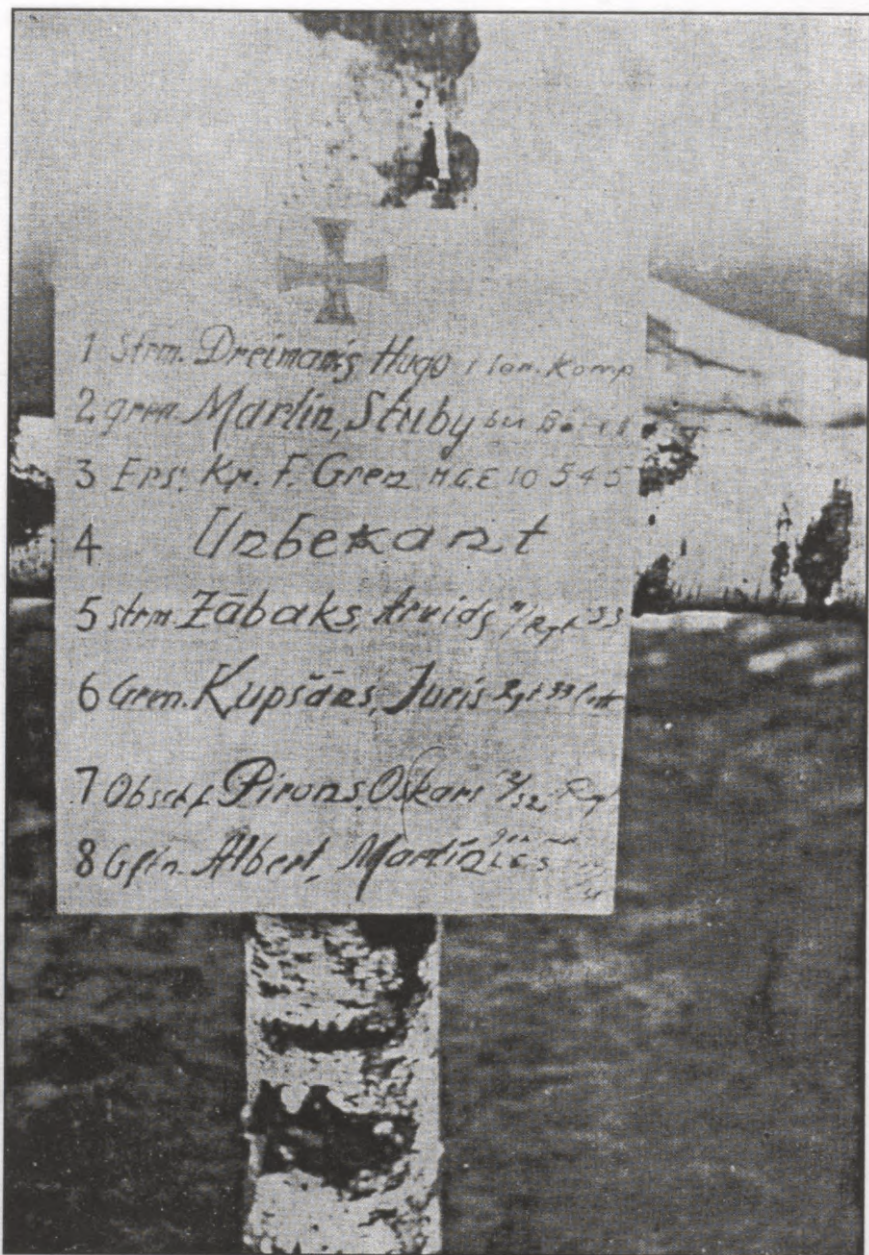 1 Strm. Dreimanis, Hugo Komp
2 gren. Martin, Stuby
3 Ers. Kp. F. Gren M.G.E 10 545
4 Unbekant
5 strm. Zābaks, Arvids Rgt 33
6 Gren. Kupšāns, Juris Rgt 33
7 Obschf. Pirons, Oskars
8 Gfin. Albert, Martin